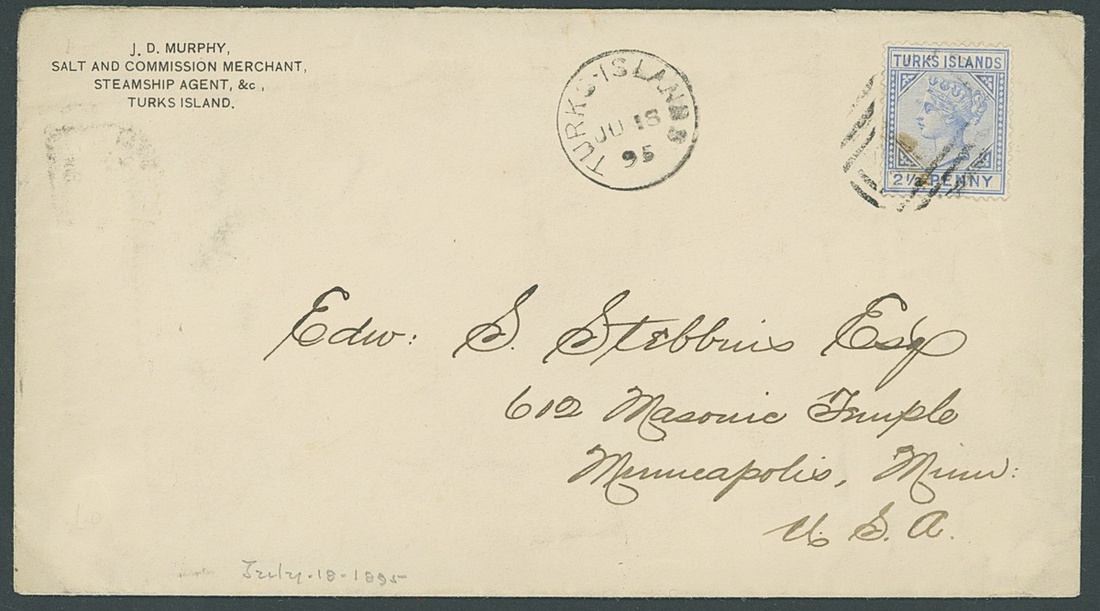 J. D. MURPHY,
SALT AND COMMISSION MERCHANT,
STEAMSHIP AGENT, &c,
TURKS ISLAND.
TURKS-ISLANDS
JU 18
95
TURKS ISLANDS
2½ PENNY
Edw: S. Stebbins Esq
602 Masonic Temple
Minneapolis, Minn:
U. S. A.
July-18-1895